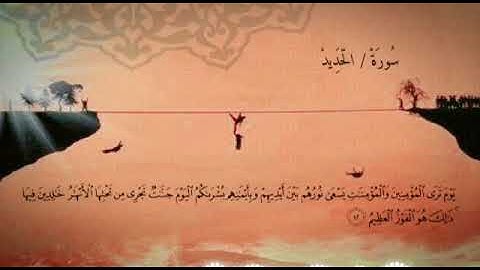 سُورَةُ / الْحَدِيدُ
يَوْمَ تَرَى الْمُؤْمِنِينَ وَالْمُؤْمِنَٰتِ يَسْعَىٰ نُورُهُم بَيْنَ أَيْدِيهِمْ وَبِأَيْمَٰنِهِم بُشْرَىٰكُمُ الْيَوْمَ جَنَّٰتٌ تَجْرِى مِن تَحْتِهَا الْأَنْهَٰرُ خَٰلِدِينَ فِيهَا
ذَٰلِكَ هُوَ الْفَوْزُ الْعَظِيمُ ١٢